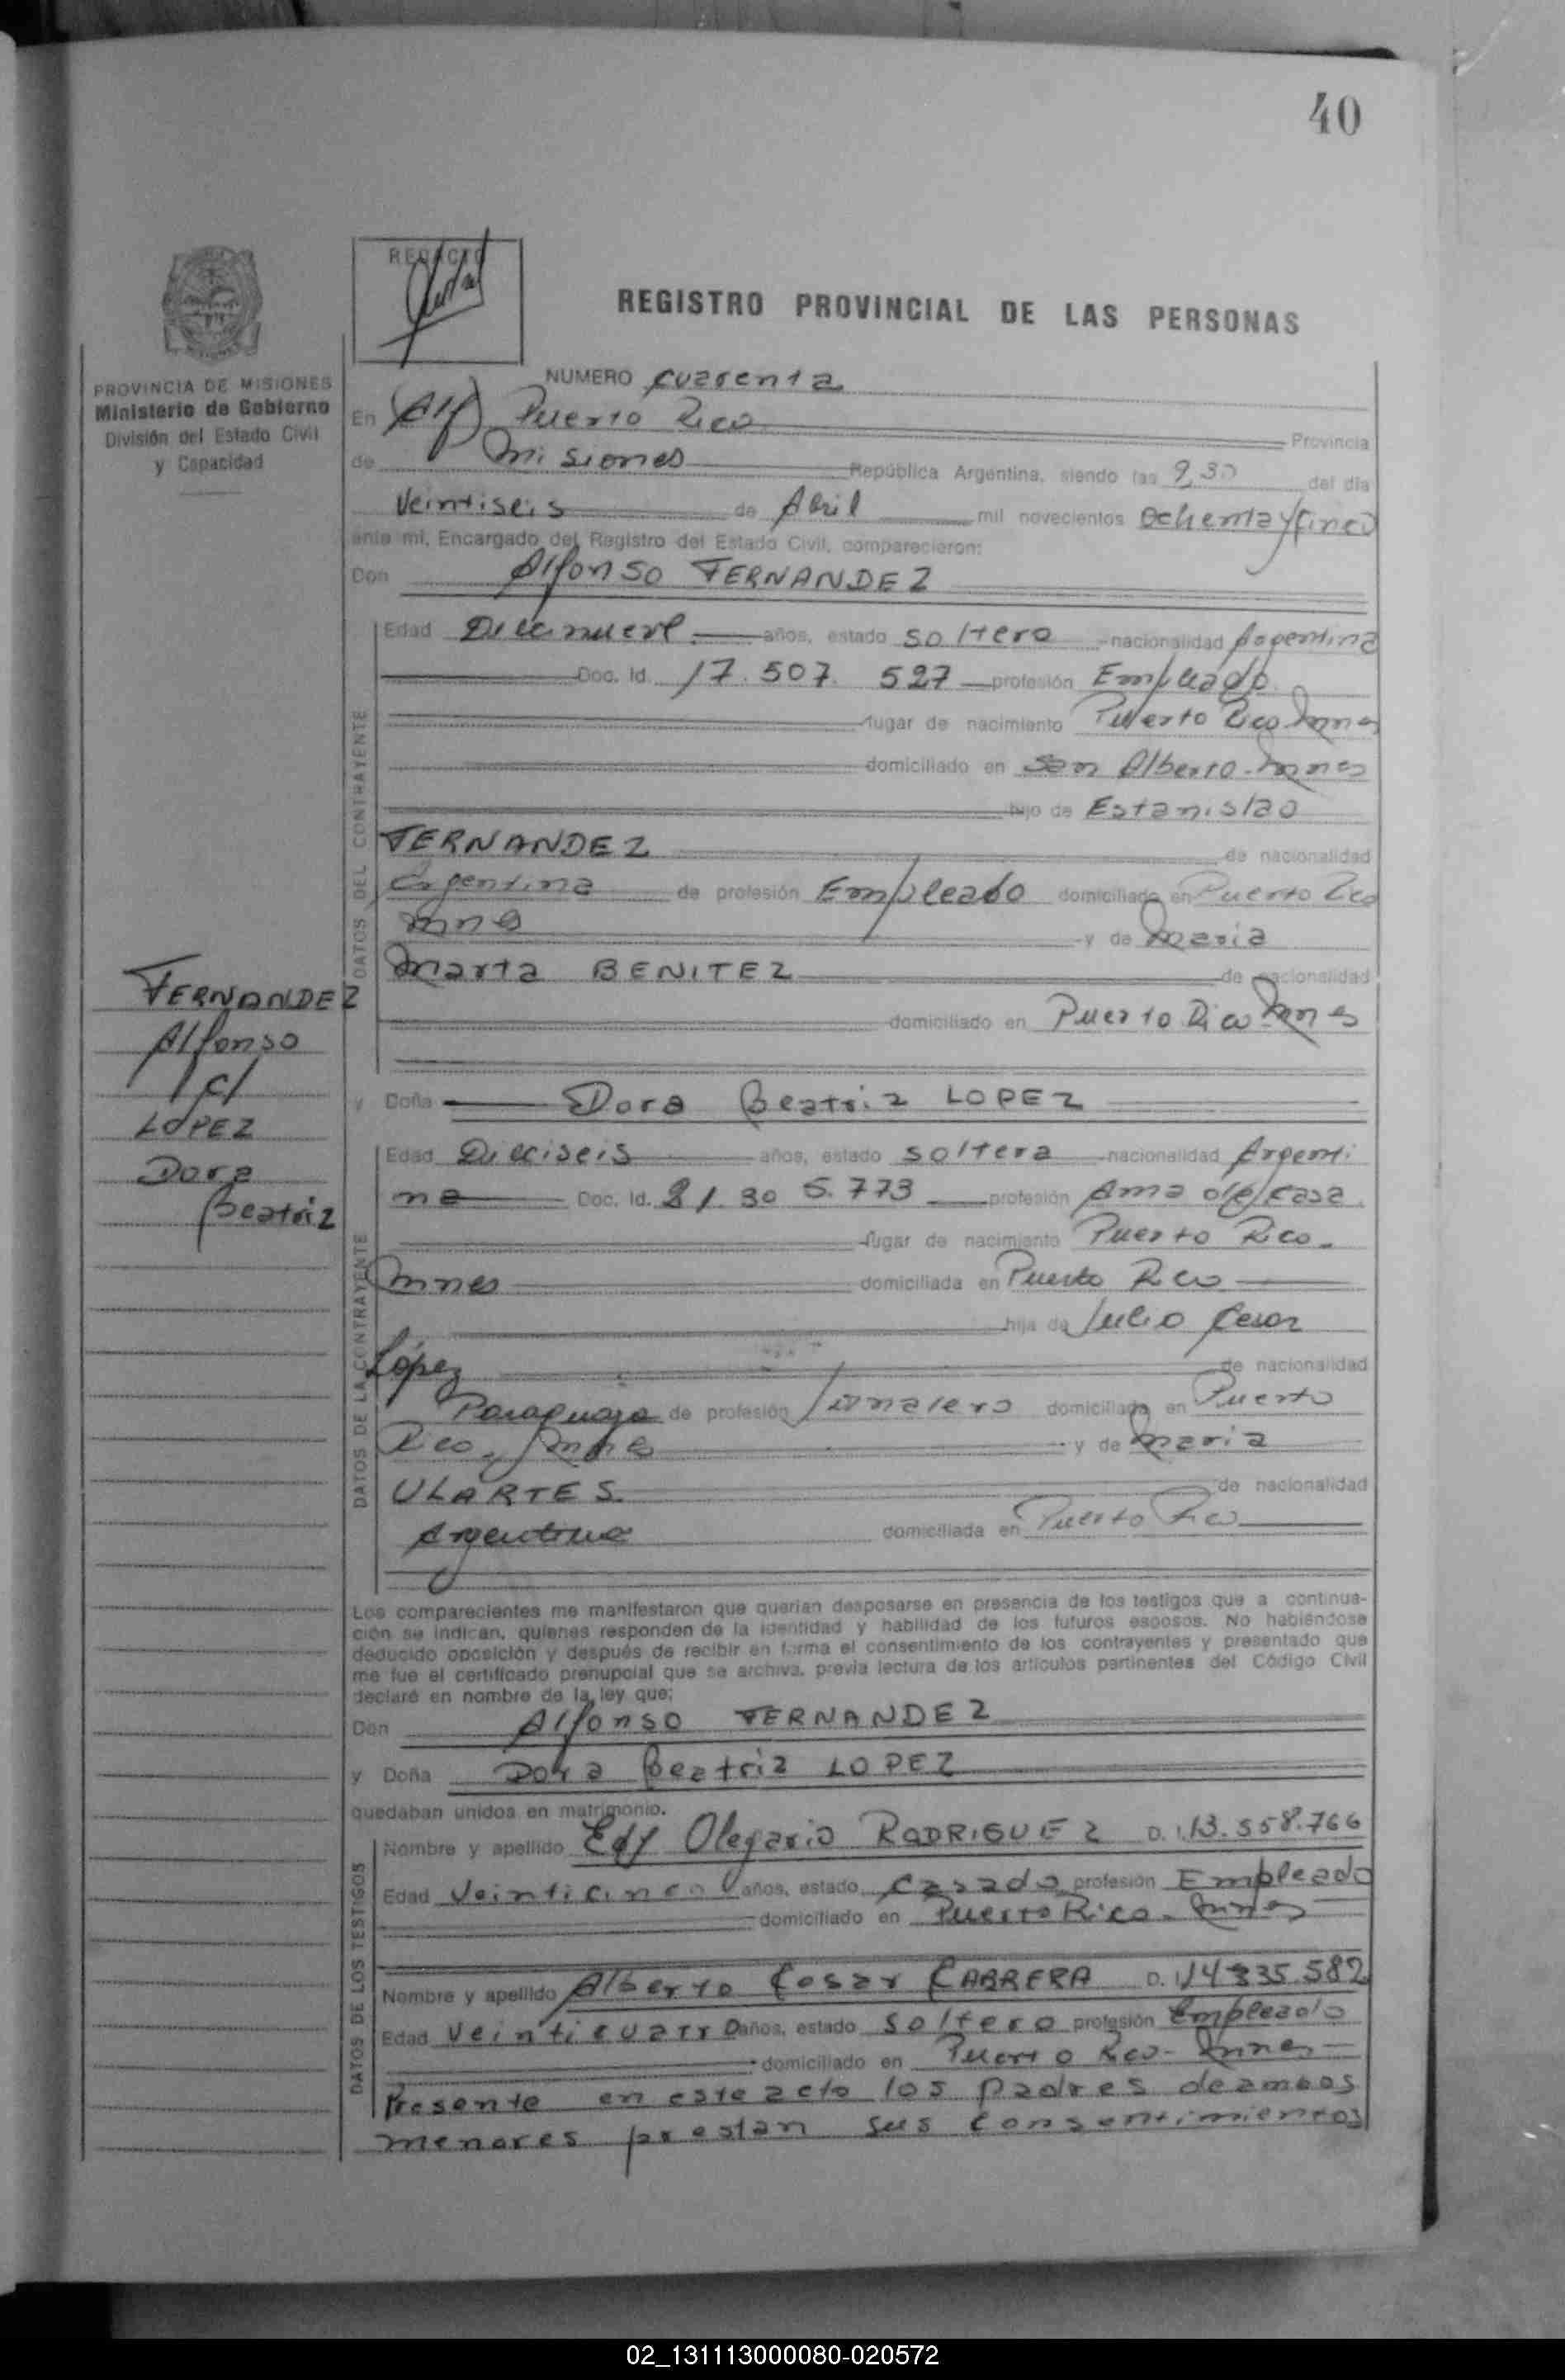 40
REDACTO
REGISTRO PROVINCIAL DE LAS PERSONAS
PROVINCIA DE MISIONES
Ministerio de Gobierno
División del Estado Civil
y Capacidad
NUMERO cuarenta
En Puerto Rico Provincia
de Misiones República Argentina, siendo las 9,30 del día
Veintiseis de Abril mil novecientos Ochenta y Cinco
ante mi, Encargado del Registro del Estado Civil, comparecieron:
Don Alfonso FERNANDEZ
DATOS DEL CONTRAYENTE
Edad Diecinueve años, estado soltero nacionalidad Argentina
Doc. Id. 17.507.527 profesión Empleado
lugar de nacimiento Puerto Rico Mnes
domiciliado en San Alberto - Mnes
hijo de Estanislao
FERNANDEZ de nacionalidad
Argentina de profesión Empleado domiciliado en Puerto Rico
Mnes y de Maria
Marta BENITEZ de nacionalidad
domiciliado en Puerto Rico Mnes
FERNANDEZ
Alfonso
c/
LOPEZ
Dora
Beatriz
y Doña Dora Beatriz LOPEZ
DATOS DE LA CONTRAYENTE
Edad Dieciseis años, estado soltera nacionalidad Argenti
na Doc. Id. 21.305.773 profesión Ama de casa
lugar de nacimiento Puerto Rico -
Mnes domiciliada en Puerto Rico
hija de Julio Cesar
López de nacionalidad
Paraguaya de profesión Jornalero domiciliado en Puerto
Rico, Mnes y de Maria
ULARTES de nacionalidad
Argentina domiciliada en Puerto Rico
Los comparecientes me manifestaron que querían desposarse en presencia de los testigos que a continua-
ción se indican, quienes responden de la identidad y habilidad de los futuros esposos. No habiéndose
deducido oposición y después de recibir en forma el consentimiento de los contrayentes y presentado que
me fue el certificado prenupcial que se archiva, previa lectura de los artículos partinentes del Código Civil
declaré en nombre de la ley que:
Don Alfonso FERNANDEZ
y Doña Dora Beatriz LOPEZ
quedaban unidos en matrimonio.
DATOS DE LOS TESTIGOS
Nombre y apellido Edy Olegario RODRIGUEZ D.I. 13.558.766
Edad Veinticinco años, estado Casado profesión Empleado
domiciliado en Puerto Rico - Mnes
Nombre y apellido Alberto Cesar CABRERA D.I. 14.335.582
Edad Veinticuatro años, estado Soltero profesión Empleado
domiciliado en Puerto Rico - Mnes
Presente en este acto los padres de ambos
menores prestan sus consentimientos
02_131113000080-020572